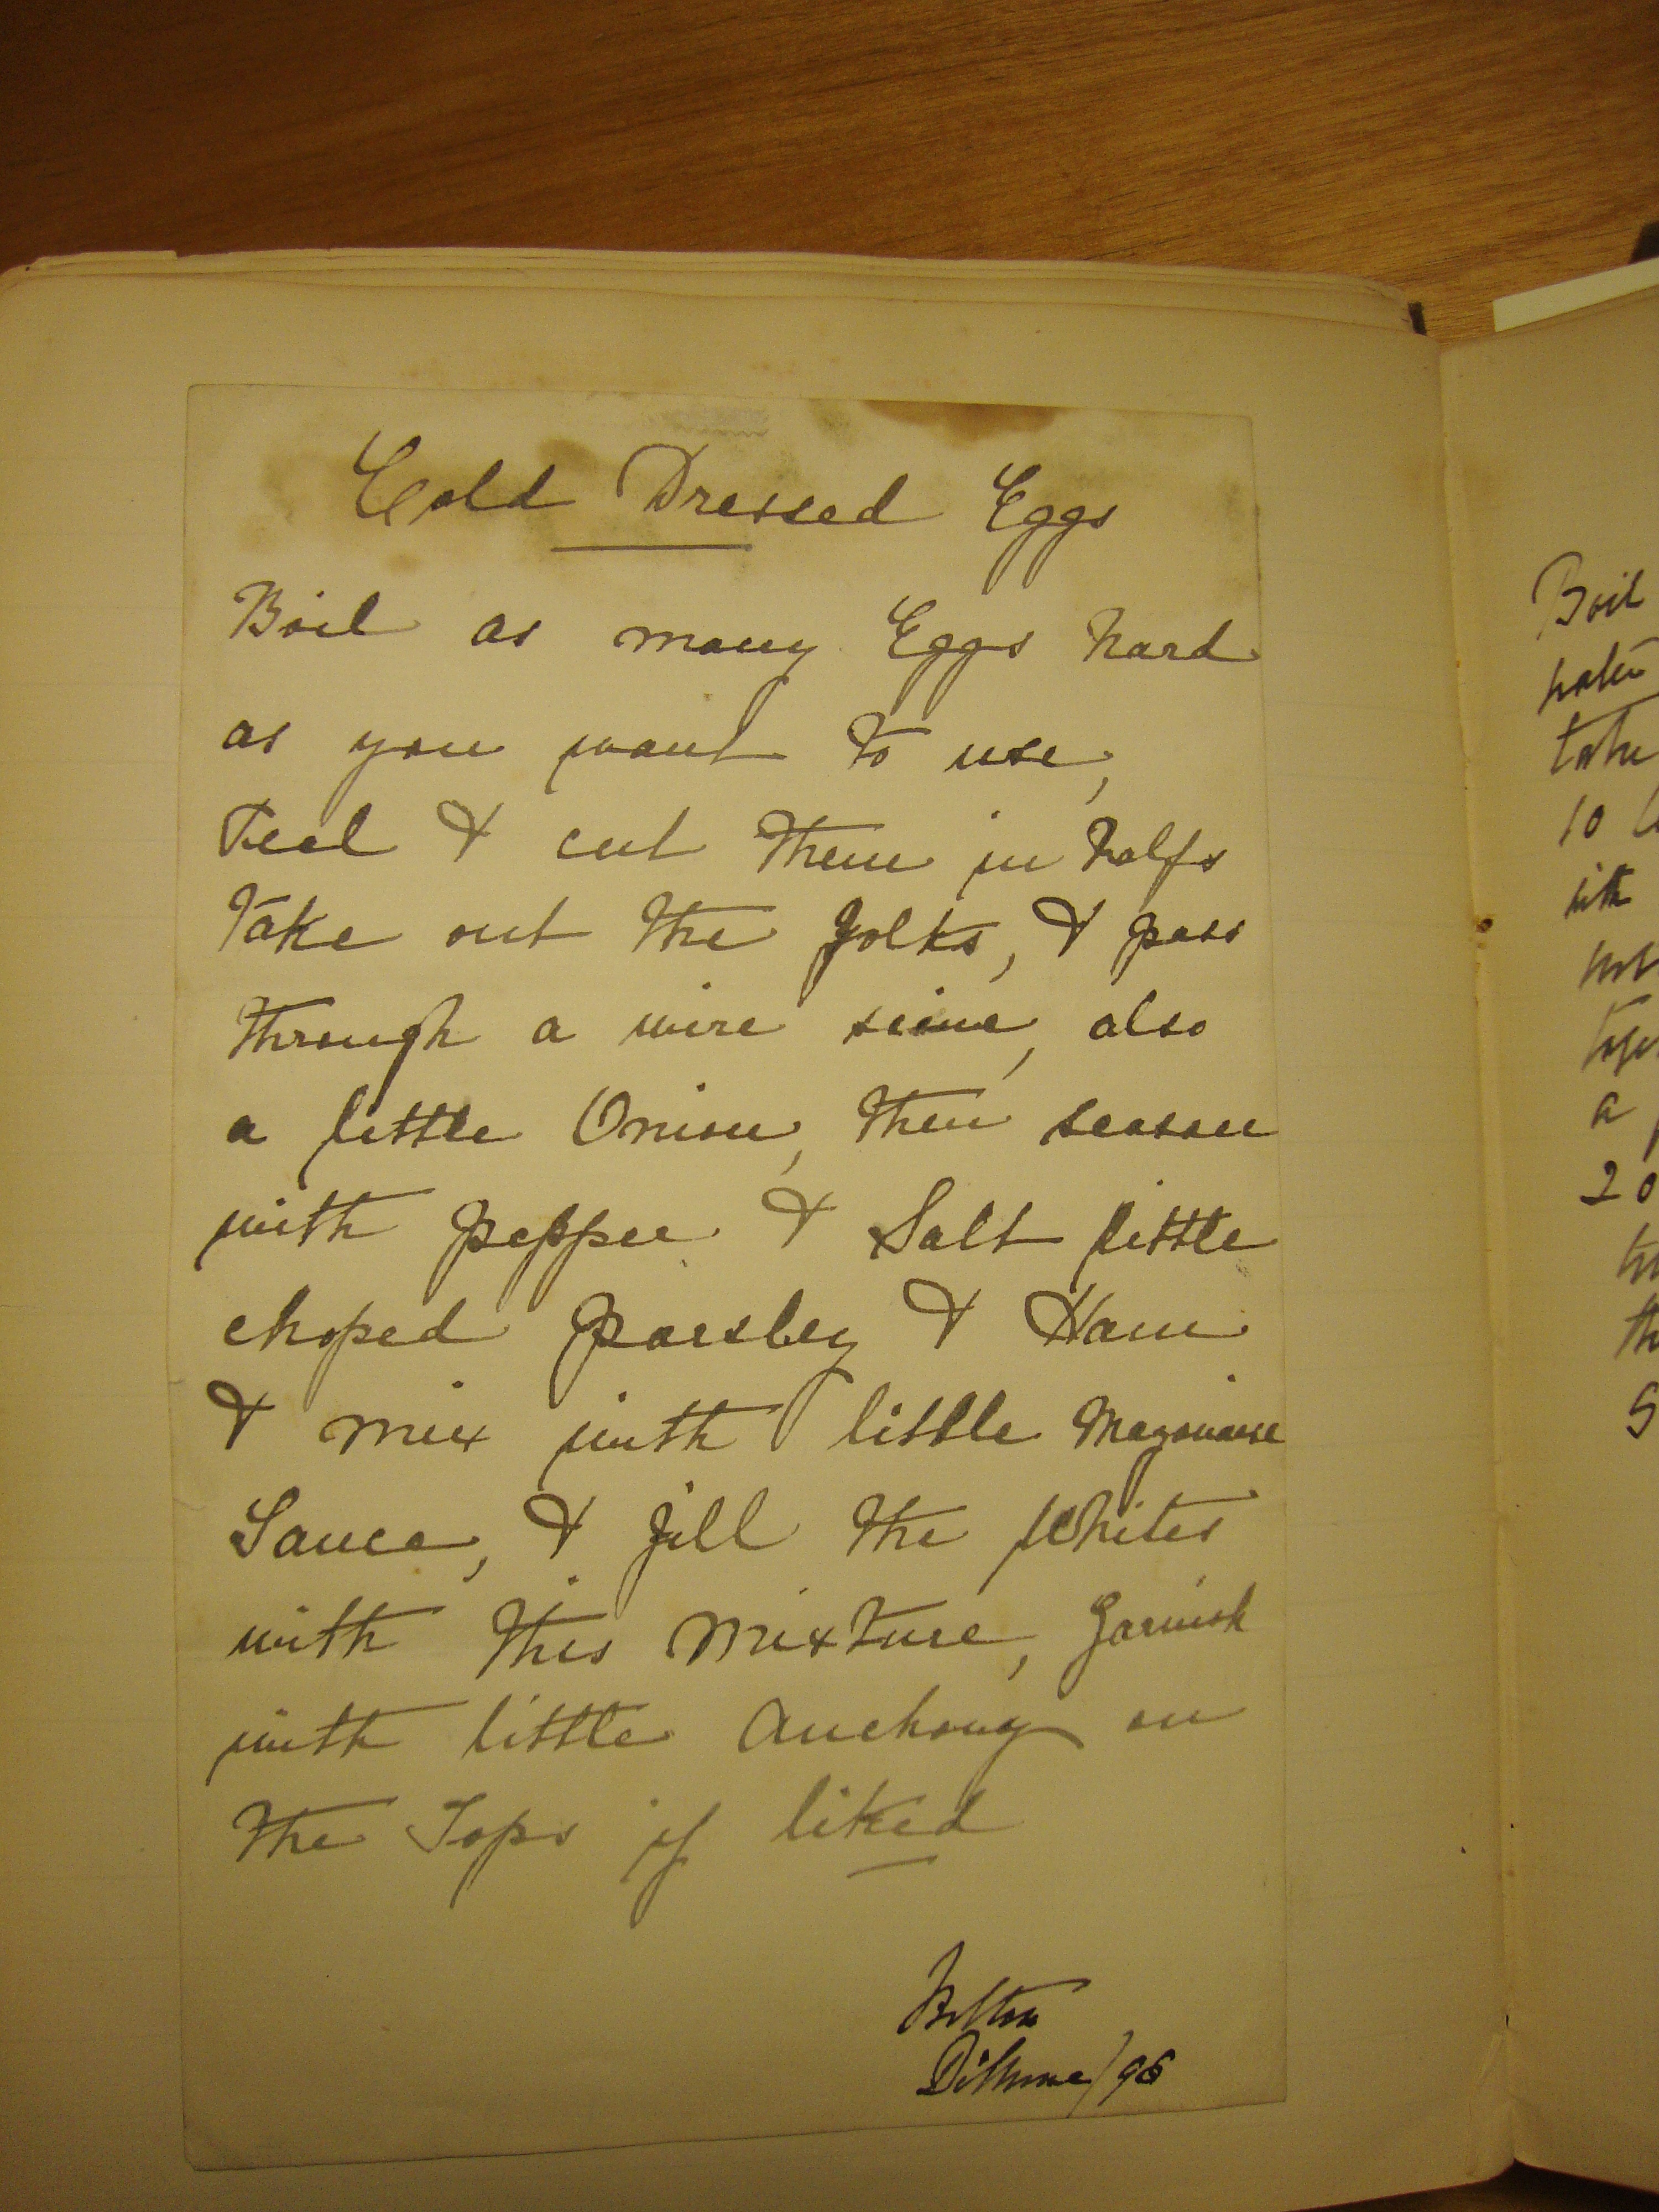 Cold Dressed Eggs
Boil as many Eggs hard
as you want to use,
Peel & cut them in halfs
Take out the yolks, & pass
through a wire sieve, also
a little Onion, then season
with pepper & Salt little
choped parsley & Ham
& mix with little Mayonaise
Sauce, & fill the Whites
with this mixture, Garnish
with little anchovy on
the Tops if liked
Bolton
/96
Boil
take
10
with
a
20